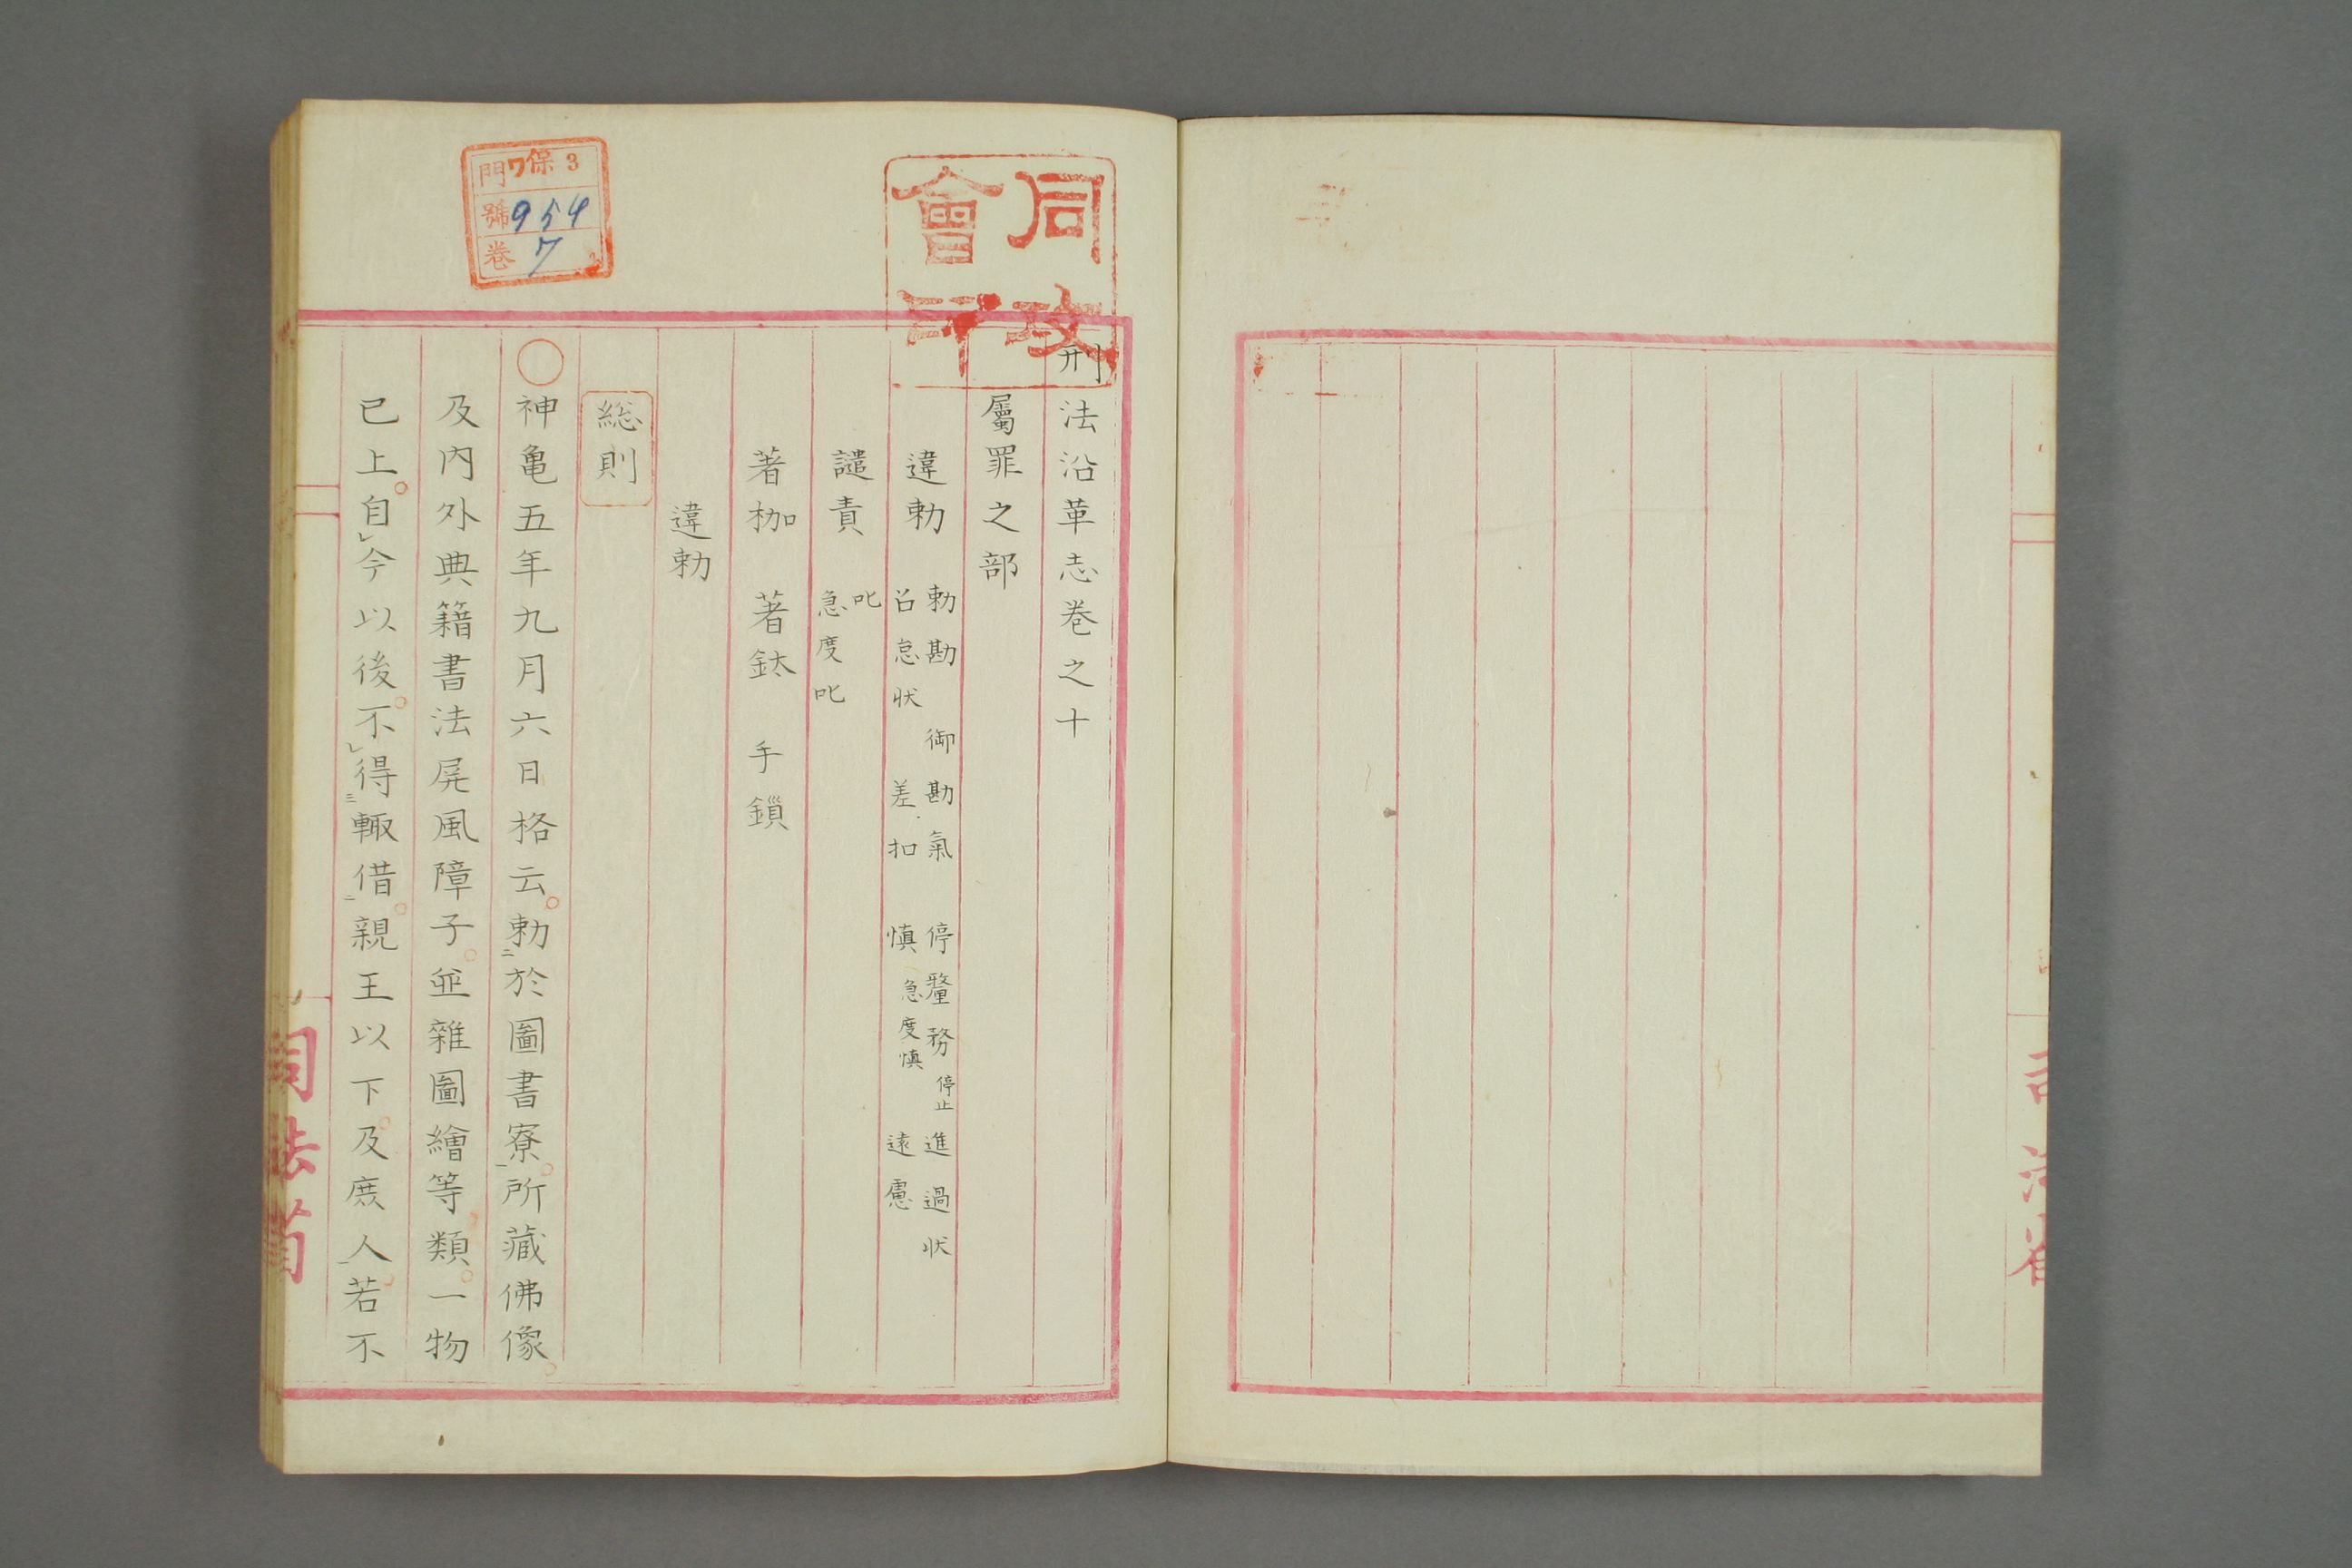 刑法沿革志巻之十
屬罪之部
違勅 勅勘 御勘氣 停釐務 停止 進過状
召怠状 差扣 慎 急度慎 遠慮
譴責 叱
急度叱
著枷 著鈦 手鎖
違勅
総則
○神亀五年九月六日格云。勅二於圖書寮一。所藏佛像。
及内外典籍書法屏風障子。並雜圖繪等類。一物
已上。自今以後。不得三輙借二。親王以下。及庶人一。若不
同攻會印
門ワ保3
號954
巻7
司法省
司法省